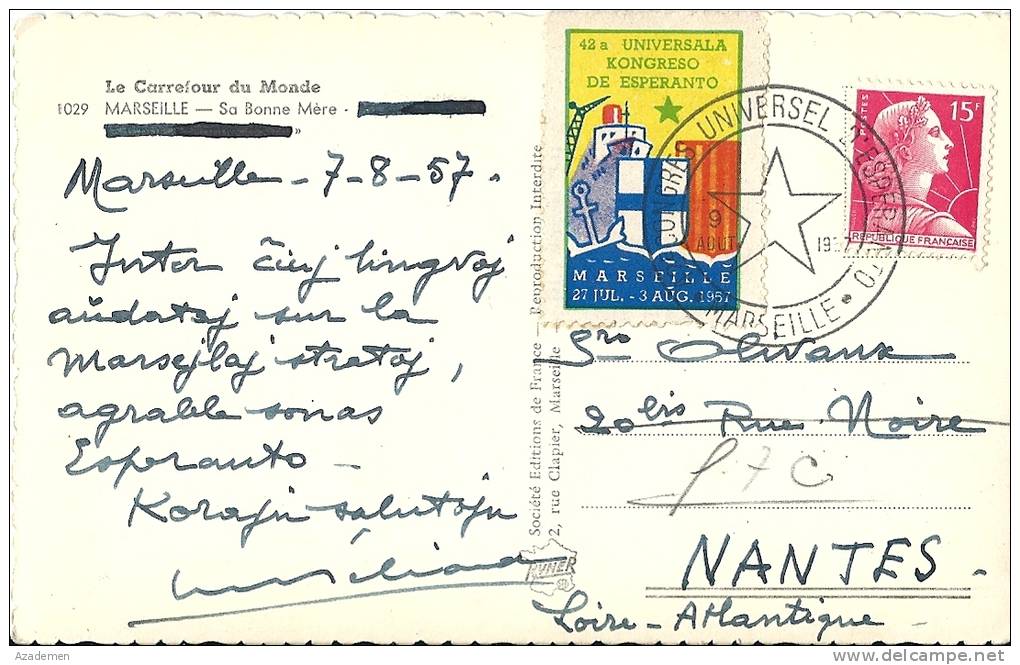 Le Carrefour du Monde
1029 MARSEILLE — Sa Bonne Mère -
»
Marseille - 7-8-57.
Inter ĉiuj lingvoj
aŭdataj sur la
Marsejlaj stratoj,
agrable sonas
Esperanto -
Korajn salutojn
Société Editions de France — Reproduction Interdite
2, rue Clapier, Marseille
RYNER
42a UNIVERSALA
KONGRESO
DE ESPERANTO
MARSEILLE
27 JUL. - 3 AUG. 1957
UNIVERSEL D'ESPERANTO
9
AOUT
1957
MARSEILLE
POSTES
15F
REPUBLIQUE FRANÇAISE
Sro Olivaux
20bis Rue Noire
NANTES -
Loire-Atlantique
Azademen
delcampe.net